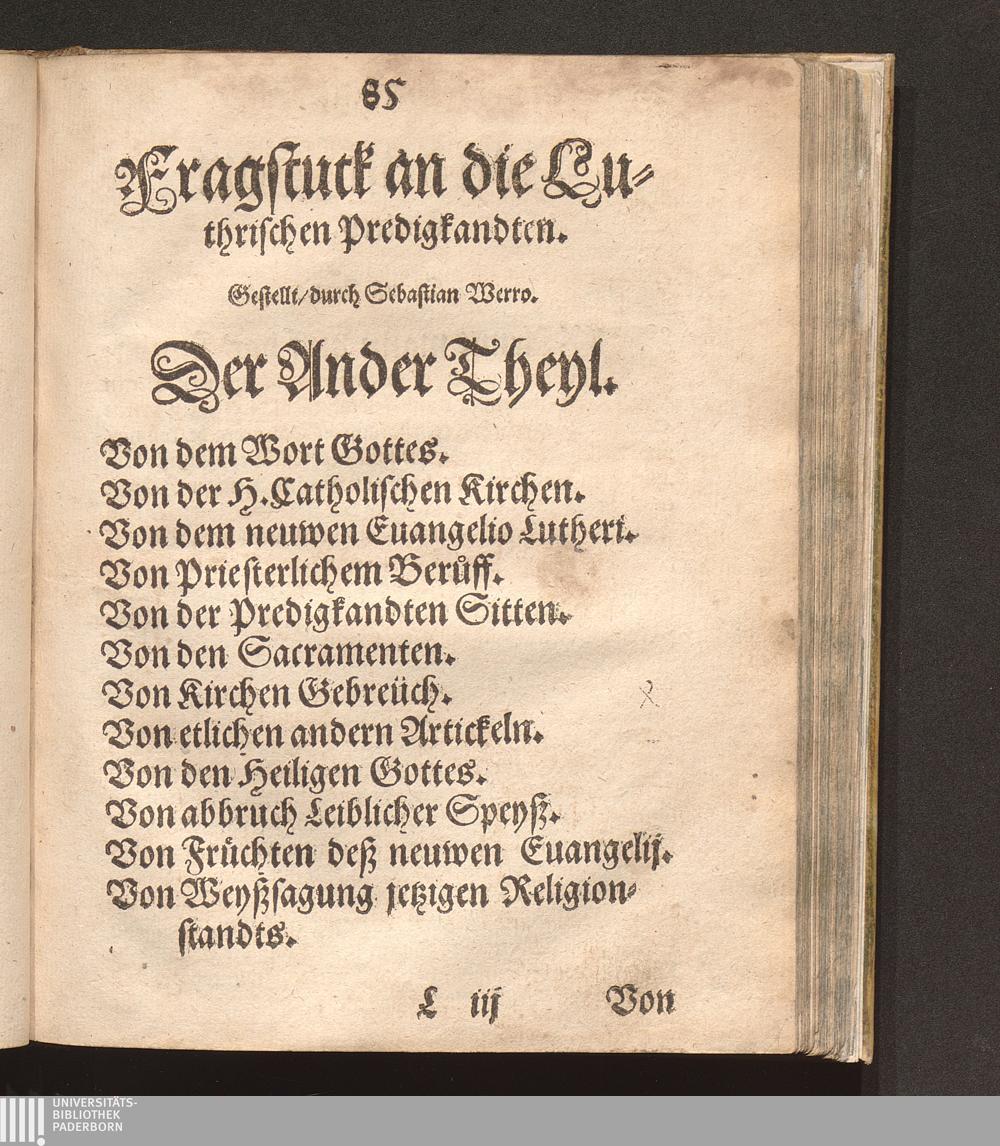 85
Fragstuck an die Lu-
thrischen Predigkandten.
Gestellt/durch Sebastian Werro.
Der Ander Theyl.
Von dem Wort Gottes.
Von der H. Catholischen Kirchen.
Von dem neuwen Euangelio Lutheri.
Von Priesterlichem Berůff.
Von der Predigkandten Sitten.
Von den Sacramenten.
Von Kirchen Gebreüch.
Von etlichen andern Artickeln.
Von den Heiligen Gottes.
Von abbruch Leiblicher Speyß.
Von Früchten deß neuwen Euangelij.
Von Weyßsagung jetzigen Religion-
standts.
L iij Von
UNIVERSITÄTS-
BIBLIOTHEK
PADERBORN